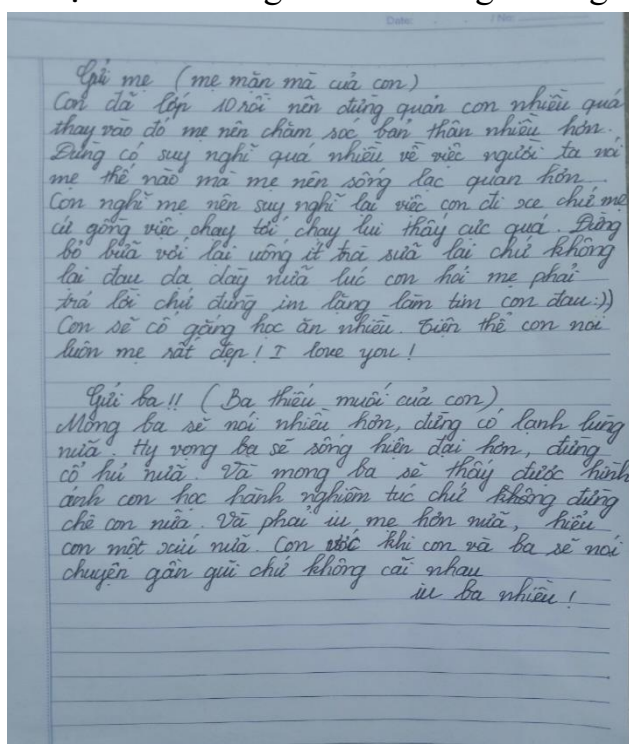 Date: / No:
Gửi mẹ (mẹ mặn mà của con)
Con đã lớp 10 rồi nên đừng quản con nhiều quá
thay vào đó mẹ nên chăm sóc bản thân nhiều hơn.
Đừng có suy nghĩ quá nhiều về việc người ta nói
mẹ thế nào mà mẹ nên sống lạc quan hơn
Con nghĩ mẹ nên suy nghĩ lại việc con đi xe chứ mẹ
cứ gồng việc chạy tới chạy lui thấy cực quá. Đừng
bỏ bữa với lại uống ít trà sữa lại chứ không
lại đau dạ dày nữa lúc con hỏi mẹ phải
trả lời chứ đừng im lặng làm tim con đau:))
Con sẽ cố gắng học ăn nhiều. Tiện thể con nói
luôn mẹ rất đẹp! I love you!
Gửi ba!! (Ba thiếu muối của con)
Mong ba sẽ nói nhiều hơn, đừng có lạnh lùng
nữa. Hy vọng ba sẽ sống hiện đại hơn, đừng
cổ hủ nữa. Và mong ba sẽ thấy được hình
ảnh con học hành nghiêm túc chứ không đừng
chê con nữa. Và phải iu mẹ hơn nữa, hiểu
con một xíu nữa. Con ước khi con và ba sẽ nói
chuyện gần gũi chứ không cãi nhau
iu ba nhiều!